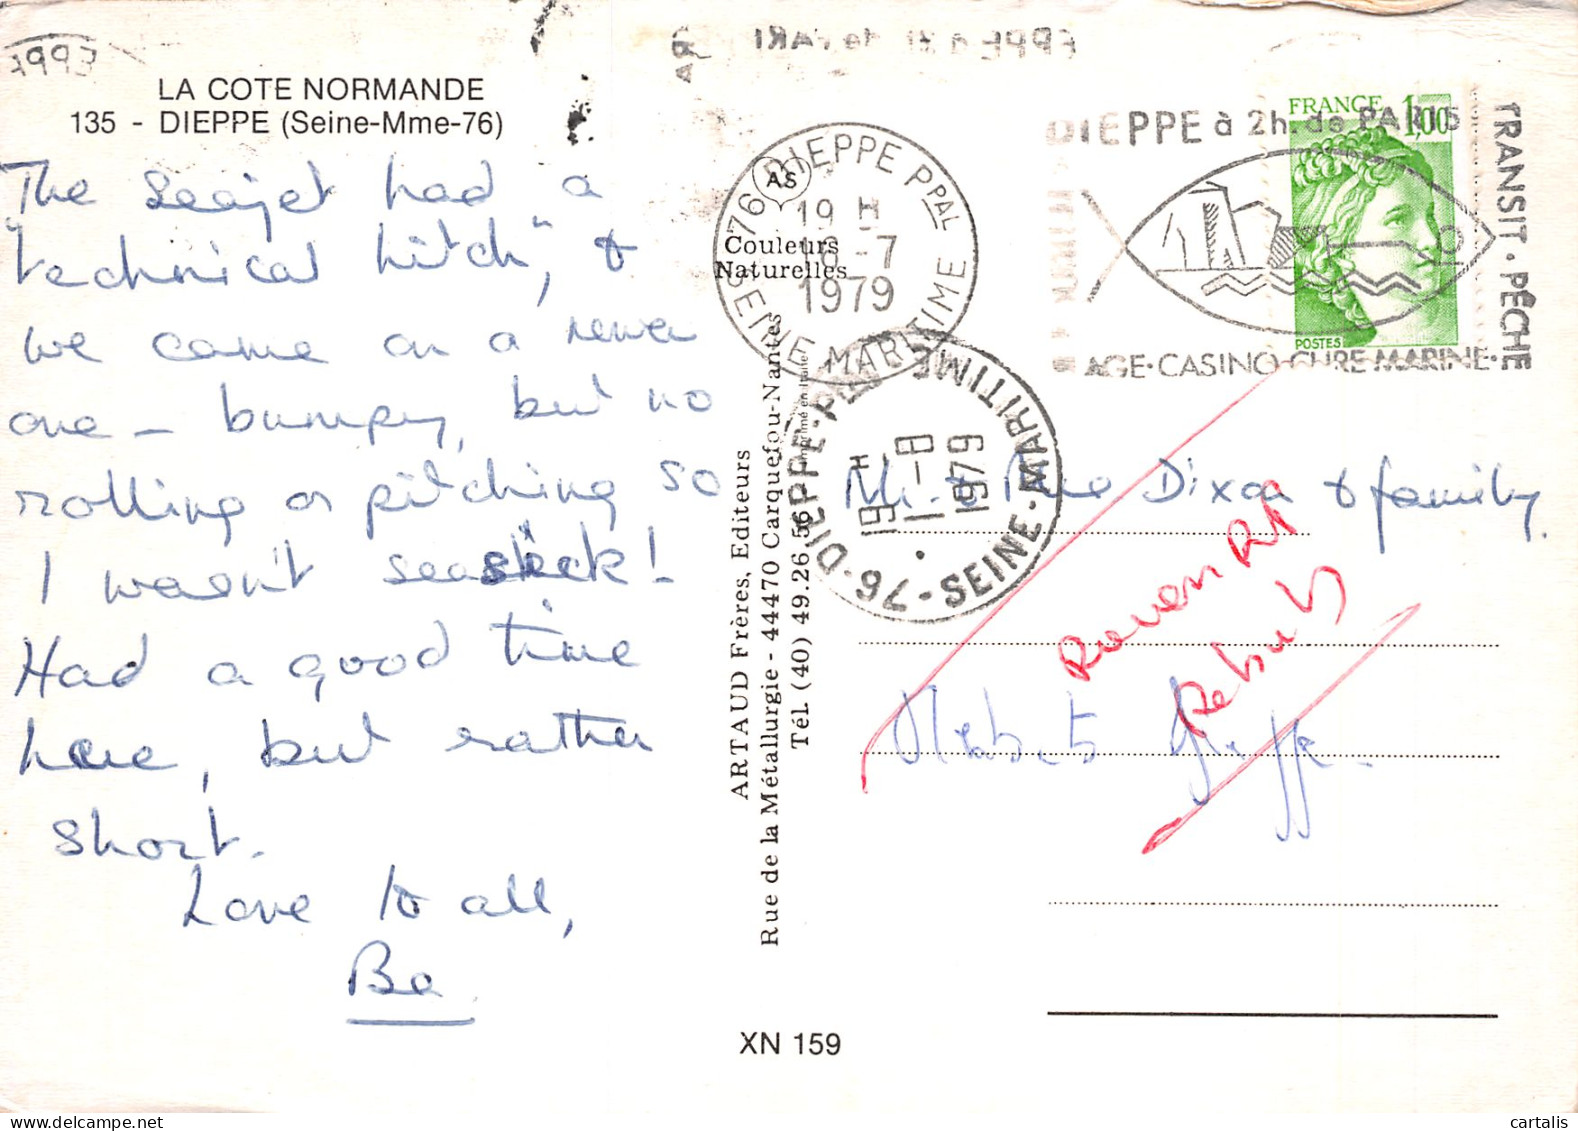 LA COTE NORMANDE
135 - DIEPPE (Seine-Mme-76)
The seajet had a
"technical hitch", &
we came on a newer
one - bumpy, but no
rolling or pitching so
I wasn't seasick!
Had a good time
here, but rather
short.
Love to all,
Be
AS
Couleurs
Naturelles
ARTAUD Frères, Editeurs
Rue de la Métallurgie - 44470 Carquefou-Nantes
Tél. (40) 49.26.56
XN 159
76 DIEPPE PPAL
19 H
16-7
1979
SEINE MARITIME
76-DIEPPE-PPAL
19 H
1-8
1979
SEINE-MARITIME
DIEPPE à 2h. de PARIS
TRANSIT · PÊCHE
AGE·CASINO-CURE MARINE·
FRANCE 1,00
POSTES
Mr & Mrs Dixon & family.
Rebuts